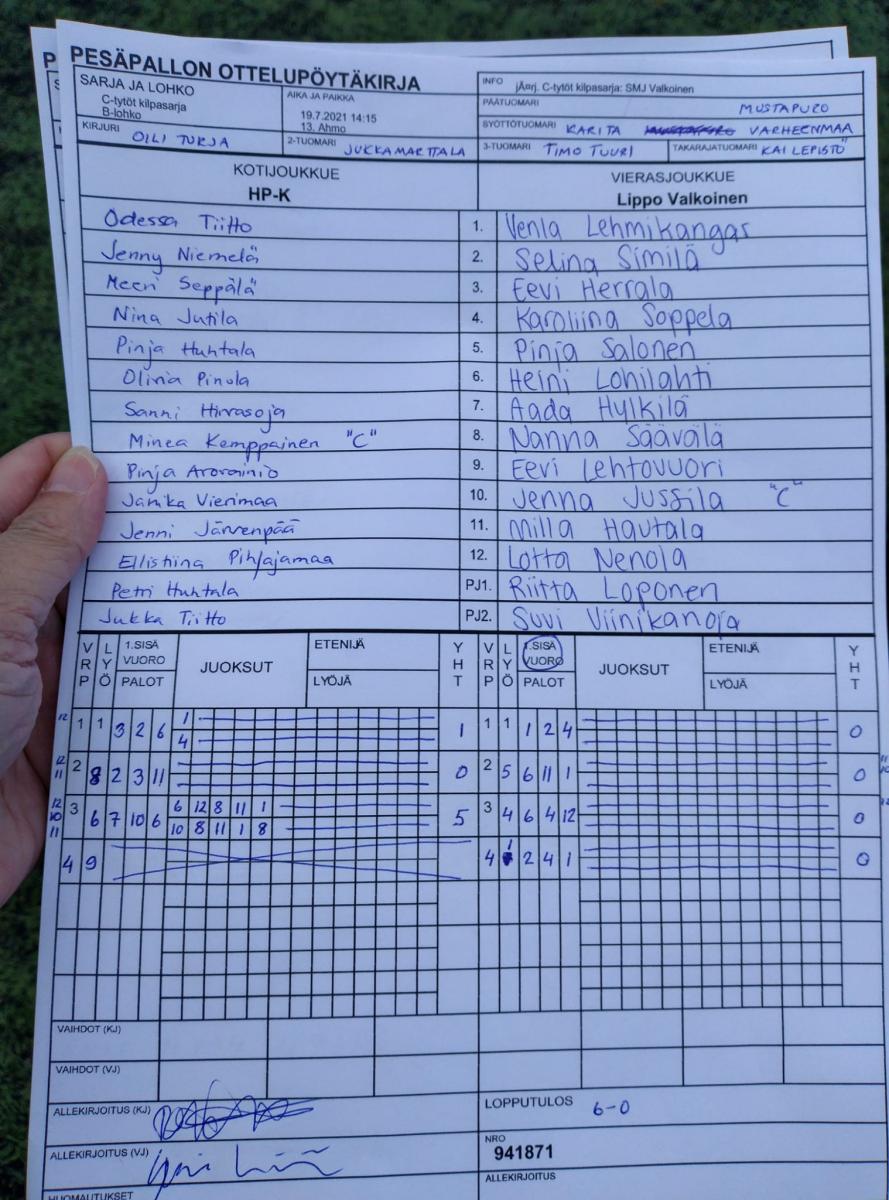 PESÄPALLON OTTELUPÖYTÄKIRJA
SARJA JA LOHKO
C-tytöt kilpasarja
B-lohko
AIKA JA PAIKKA
19.7.2021 14:15
13. Ahmo
INFO jÄ¤rj. C-tytöt kilpasarja: SMJ Valkoinen
PÄÄTUOMARI MUSTAPURO
SYÖTTÖTUOMARI KARITA VARHEENMAA
KIRJURI OILI TURJA
2-TUOMARI JUKKA MARTTALA
3-TUOMARI TIMO TUURI
TAKARAJATUOMARI KAI LEPISTÖ
KOTIJOUKKUE
HP-K
VIERASJOUKKUE
Lippo Valkoinen
Odessa Tiitto 1. Venla Lehmikangas
Jenny Niemelä 2. Selina Similä
Meeri Seppälä 3. Eevi Herrala
Nina Jutila 4. Karoliina Soppela
Pinja Huhtala 5. Pinja Salonen
Olivia Pinola 6. Heini Lohilahti
Sanni Hirvasoja 7. Aada Hylkilä
Minea Kemppainen "C" 8. Nanna Säävälä
Pinja Arovainio 9. Eevi Lehtovuori
Janika Vierimaa 10. Jenna Jussila "C"
Jenni Järvenpää 11. Milla Hautala
Ellistiina Pihlajamaa 12. Lotta Nenola
Petri Huhtala PJ1. Riitta Loponen
Jukka Tiitto PJ2. Suvi Viinikanoja
VRP LYÖ 1.SISÄ VUORO PALOT JUOKSUT ETENIJÄ LYÖJÄ YHT VRP LYÖ 1.SISÄ VUORO PALOT JUOKSUT ETENIJÄ LYÖJÄ YHT
12 1 1 3 2 6 1 4 1 1 1 1 2 4 0
12 11 2 8 2 3 11 0 2 5 6 11 1 0
12 10 11 3 6 7 10 6 6 12 8 11 1 5 3 4 6 4 12 0
10 8 11 1 8
4 9 4 1 2 4 1 0
VAIHDOT (KJ)
VAIHDOT (VJ)
ALLEKIRJOITUS (KJ)
LOPPUTULOS 6-0
ALLEKIRJOITUS (VJ)
NRO
941871
HUOMAUTUKSET
ALLEKIRJOITUS